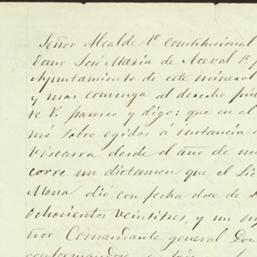 Señor Alcalde 1º Constitucional
José Maria de Aceval
Ayuntamiento de este mineral
y mas convenga al derecho
te V. paresco y digo: que en el
mó sobre egidos á instancia
Viscarra desde el año de
corre un dictamen que el
Merra dió con fecha doce de
Ochocientos veintitres, y un
ñor Comandante general Don